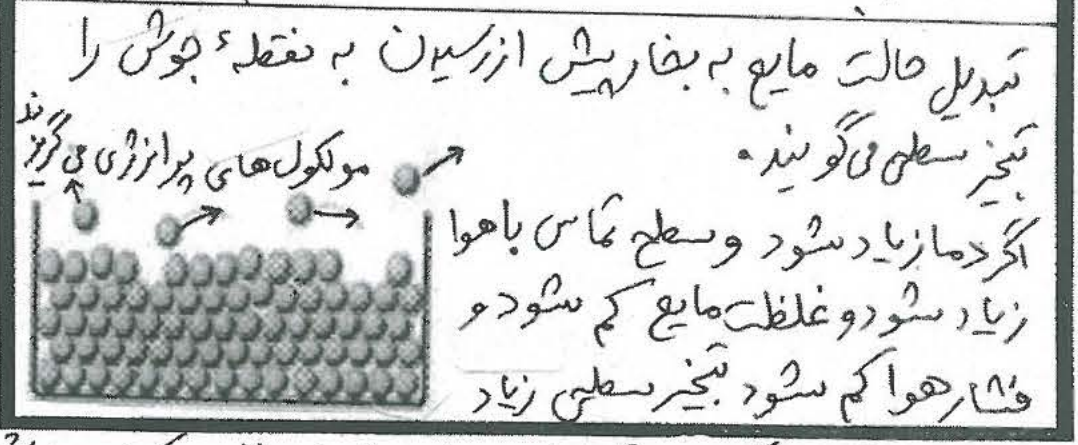 تبدیل حالت مایع به بخار پیش از رسیدن به نقطهٔ جوش را
تبخیر سطحی می‌گویند.
مولکول‌های پر انرژی می‌گریزند
اگر دما زیاد شود و سطح تماس با هوا
زیاد شود و غلظت مایع کم شود و
فشار هوا کم شود تبخیر سطحی زیاد